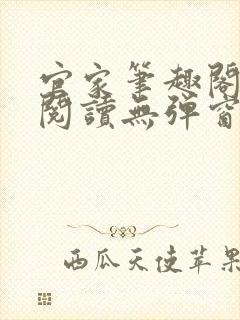 官家筆趣閣
閱讀無彈窗
西瓜天使苹果